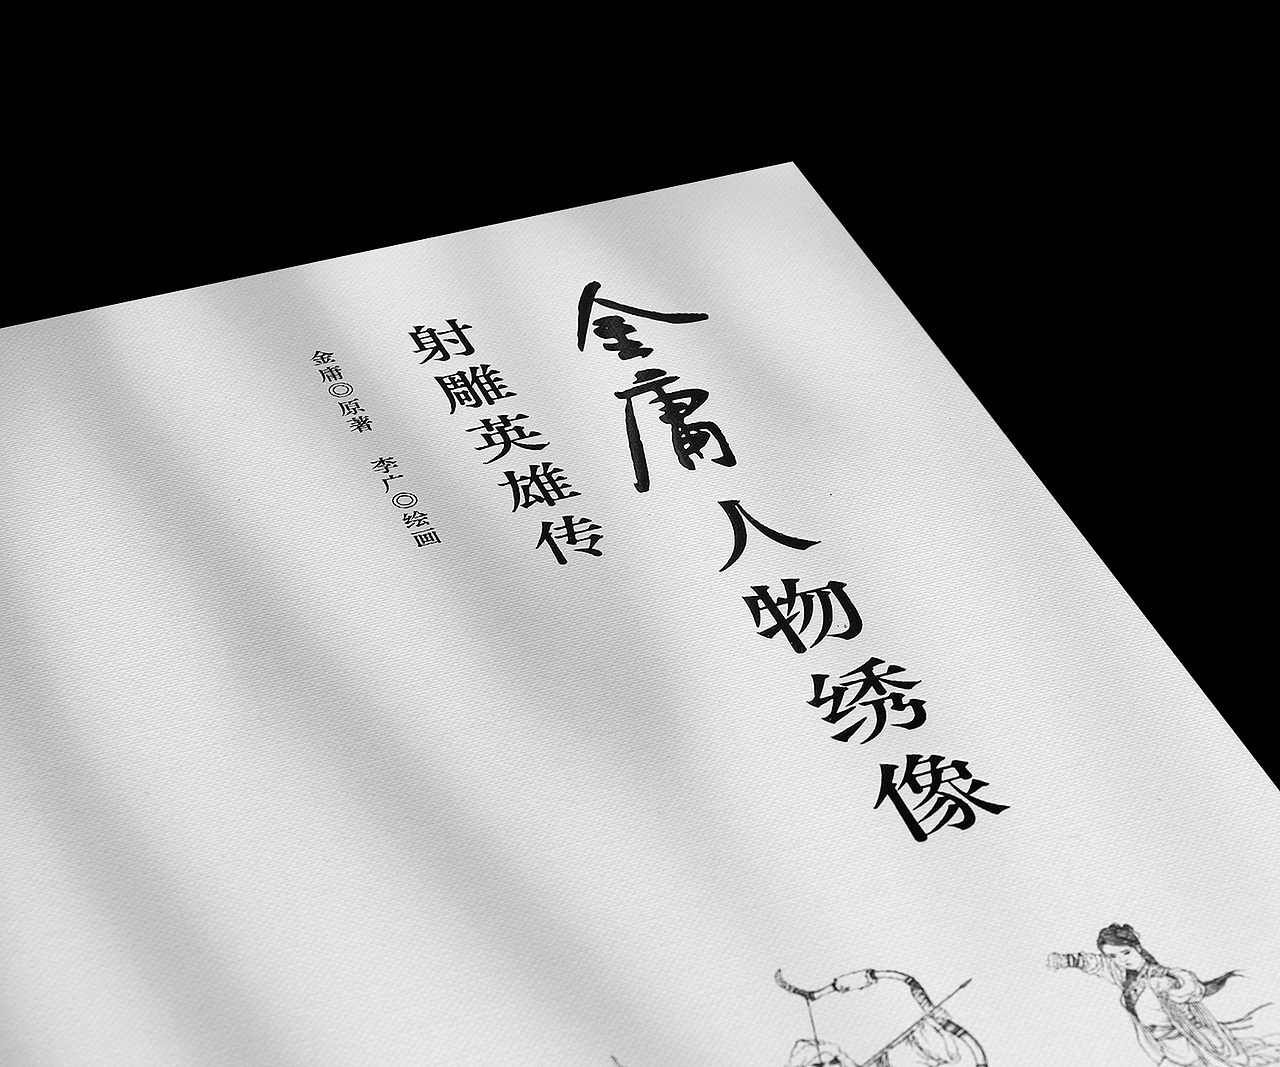 金庸人物绣像
射雕英雄传
金庸◎原著 李广◎绘画